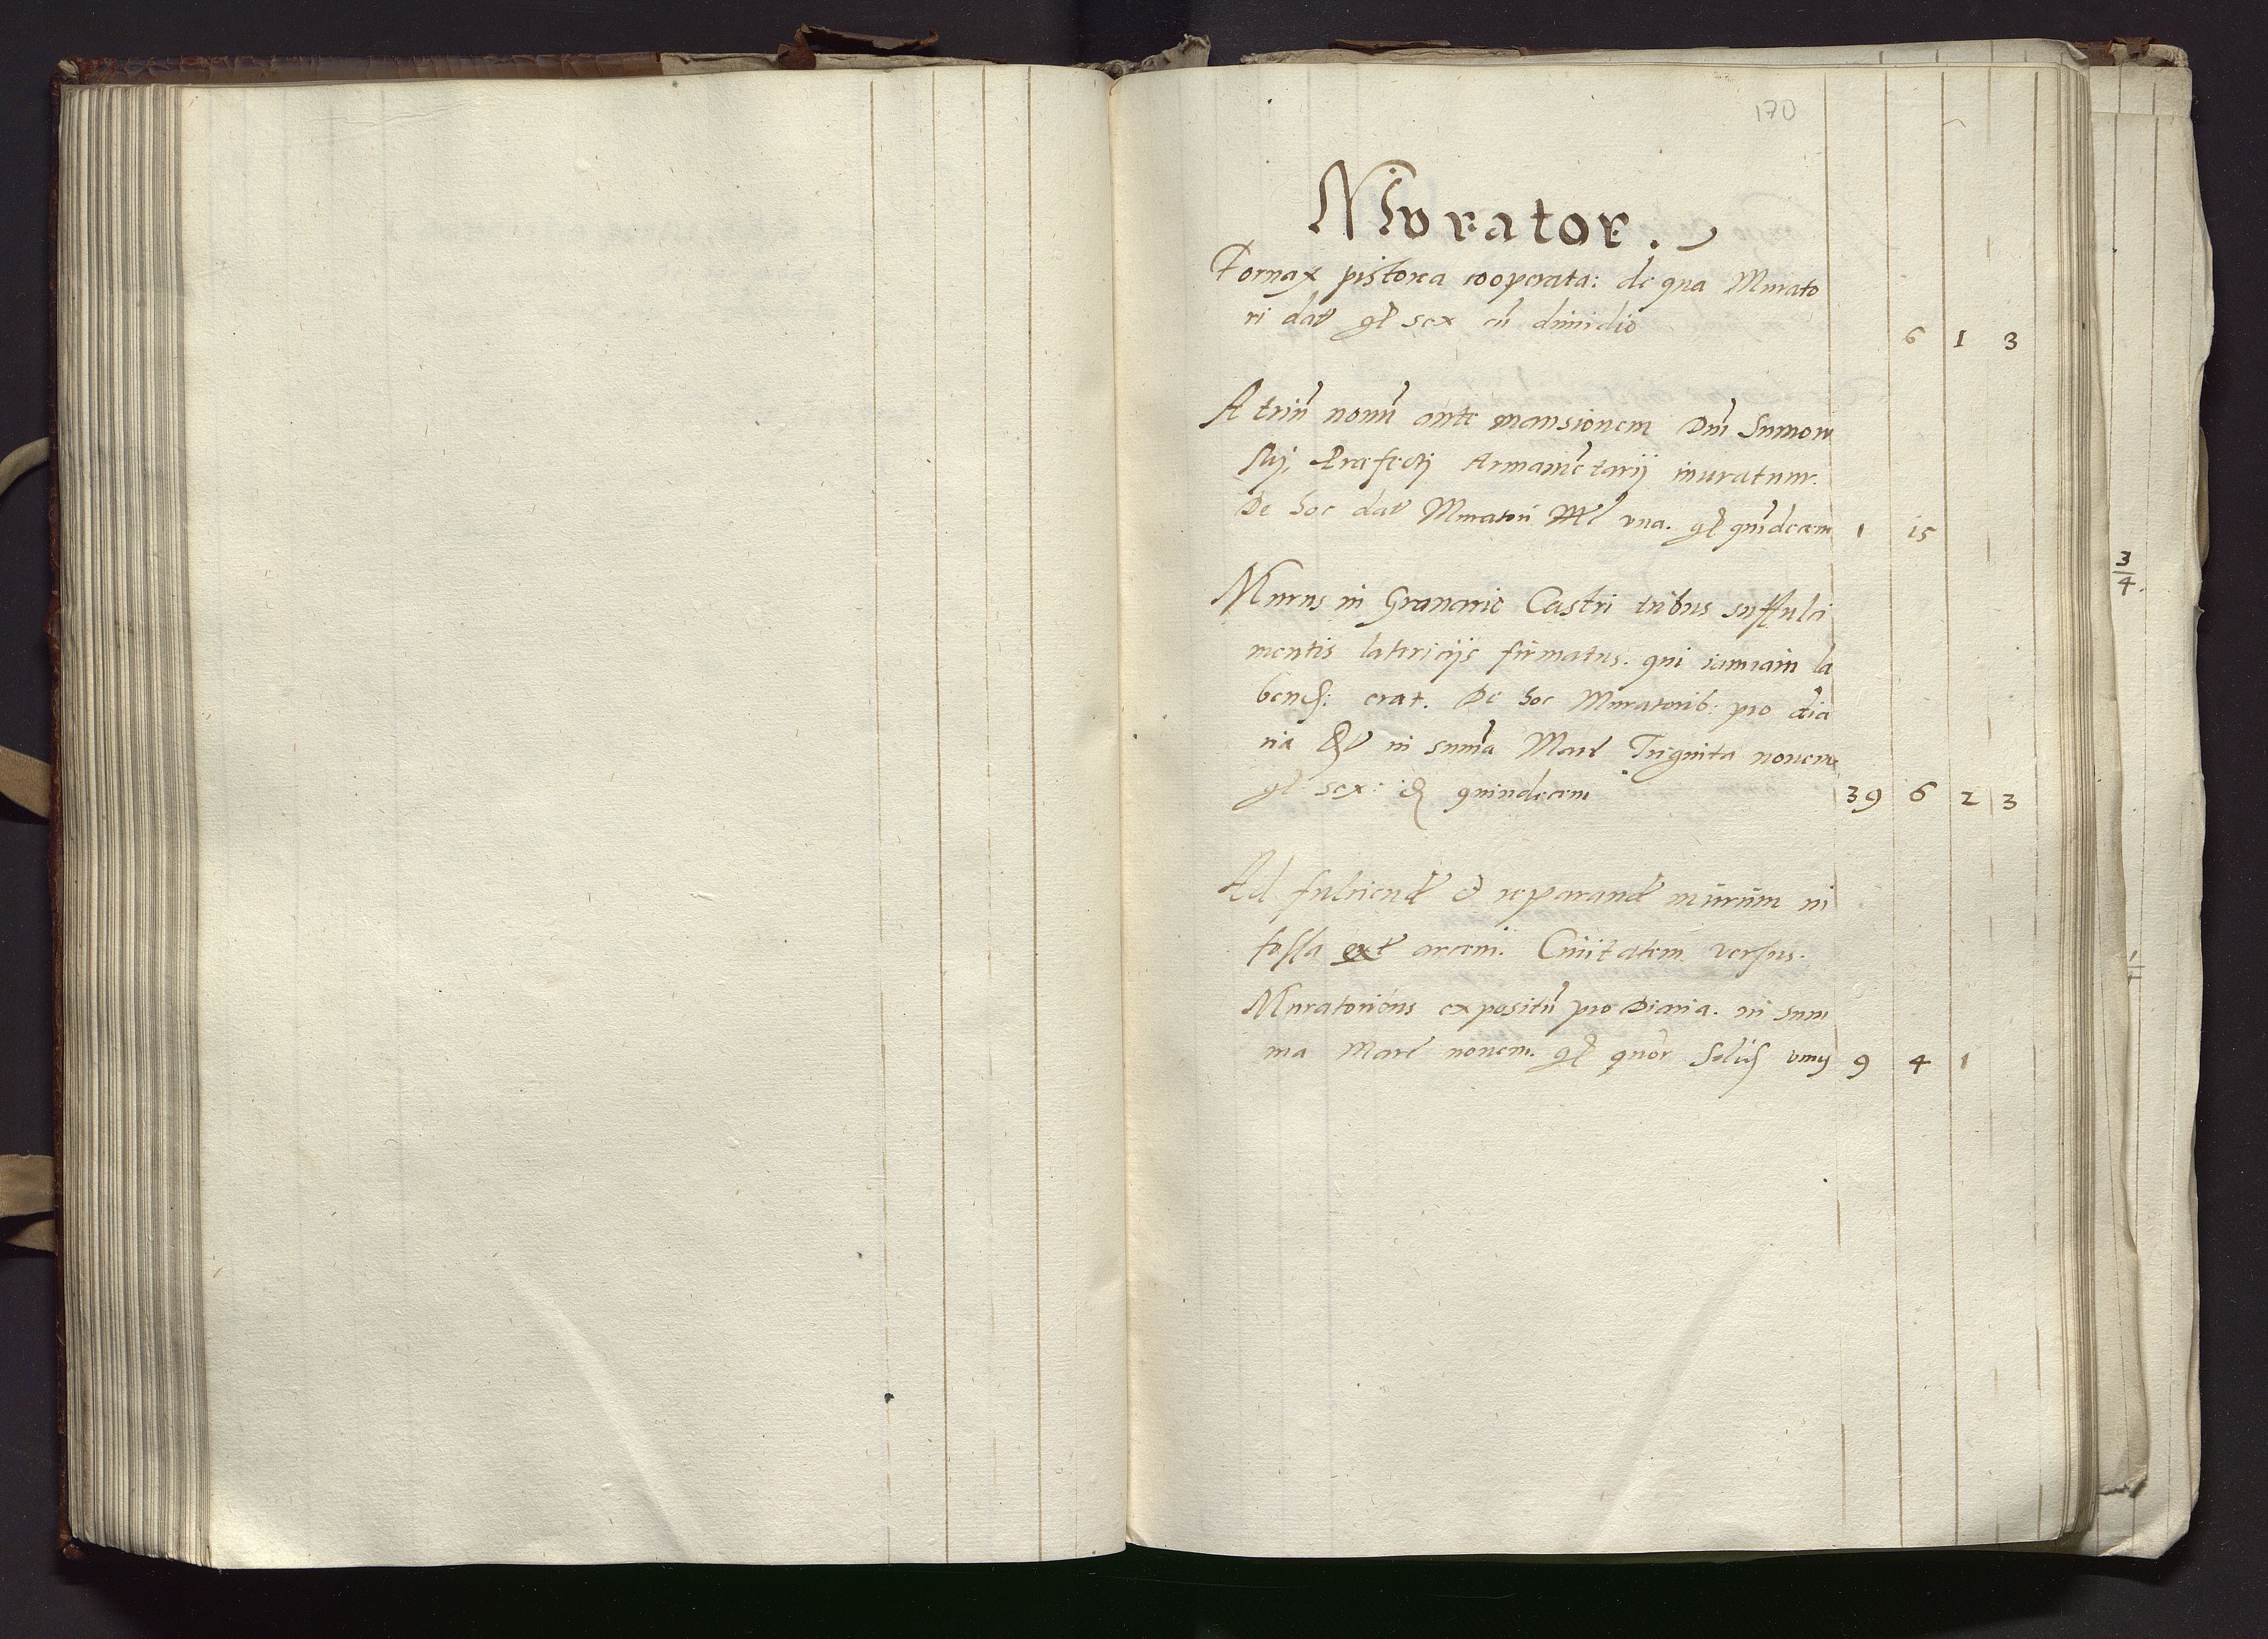 170
Murator.
Fornax pistorea cooperata: de qua Murato
ri dat gł sex cū dimidio 6 1 3
Atriū nouū ante mansionem Dni
Præfecti Armamētarij muratum.
De hoc dat Muratori Mł vna. gł quīdecem 1 15
Murus in Granario Castri tribus suffulci
mentis latericijs firmatus. qui iamiam la
bend: erat. De hoc Muratorib: pro dia
ria in suma̅ Marł Triginta nouem
gł sex: quindecem 39 6 2 3
Ad fulciend & reparand murum in
fossa ext arcem. Ciuitatem versus.
Muratoribus expositū pro Diaria. in sum
ma Marł nouem. gł quor Solid vnus 9 4 1
3
4